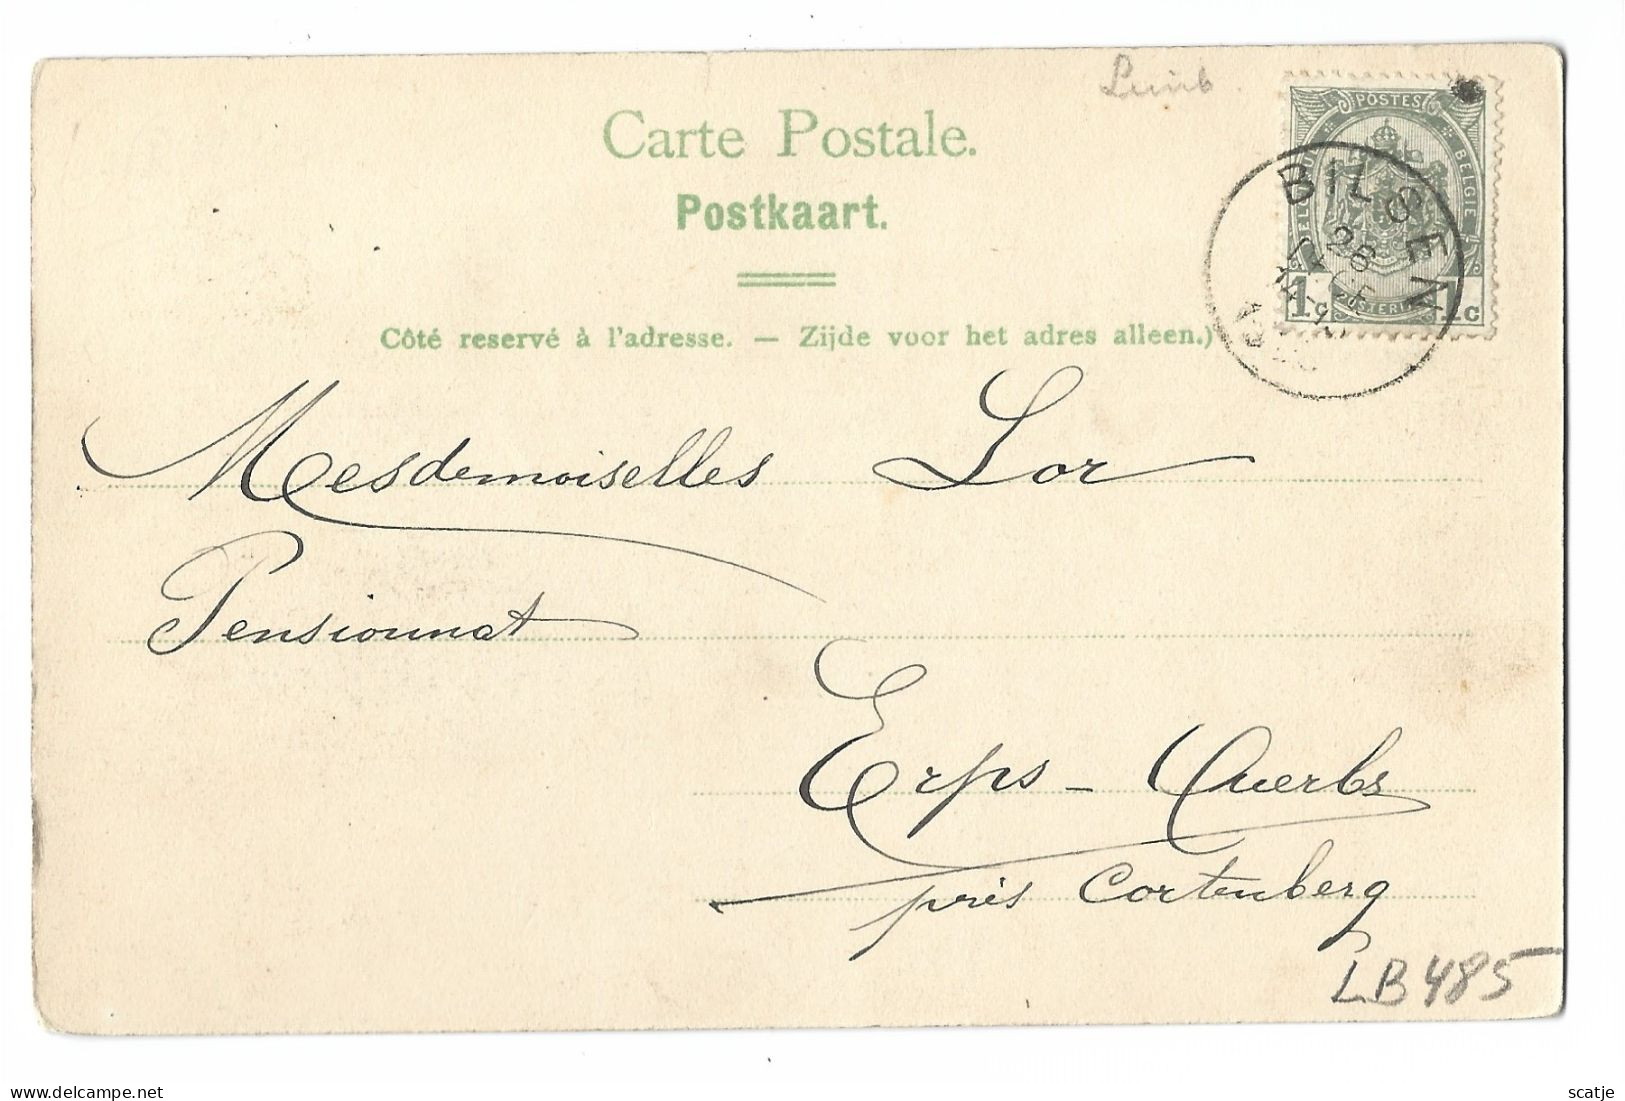 Limb.
Carte Postale.
Postkaart.
POSTES
BELGIE
1 1c
BILSEN
28
Côté reservé à l'adresse. — Zijde voor het adres alleen.)
Mesdemoiselles Lor
Pensionnat
Erps - Querbs
près Cortenberg
LB485
scatje